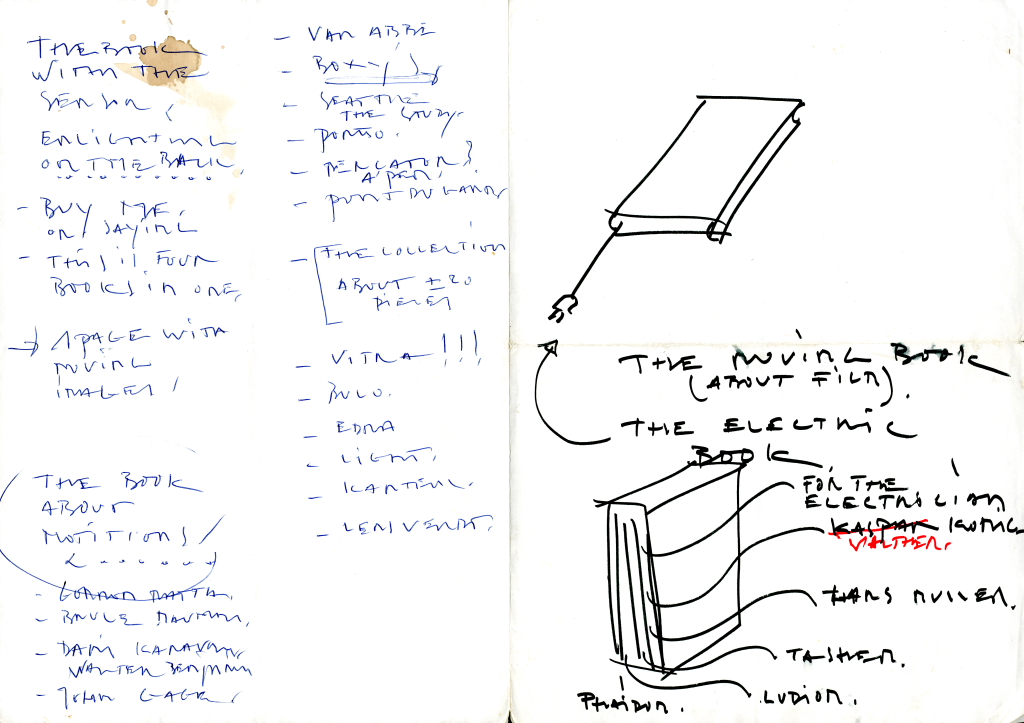 THE BOOK
WITH THE
SENSOR,
ENLIGHTING
ON THE BACK.
- BUY ME,
OR SAYING
- THIS IS FOUR
BOOKS IN ONE.
→ A PAGE WITH
MOVING
IMAGES!
THE BOOK
ABOUT
- GORDON MATTA.
- BRUCE NAUMAN.
- DANI KARAVAN,
WALTER BENJAMIN
- JOHN CAGE.
- VAN ABBE
- BOX-
- SEATTLE
THE STUDY.
- PORTO.
- MERCATOR?
A'PEN.
- PONT DU GARD
- THE COLLECTION
ABOUT ± 20
PIECES
- VITRA !!!
- BULO.
- EDRA
- LIGHT.
- KARTELL.
- LENSVELT.
THE MOVING BOOK
(ABOUT FILM).
THE ELECTRIC
BOOK
FOR THE
ELECTRICIAN
KASPAR KONIG
WALTHER.
HANS MULLER.
TASHEN.
LUDION.
PHAIDON.